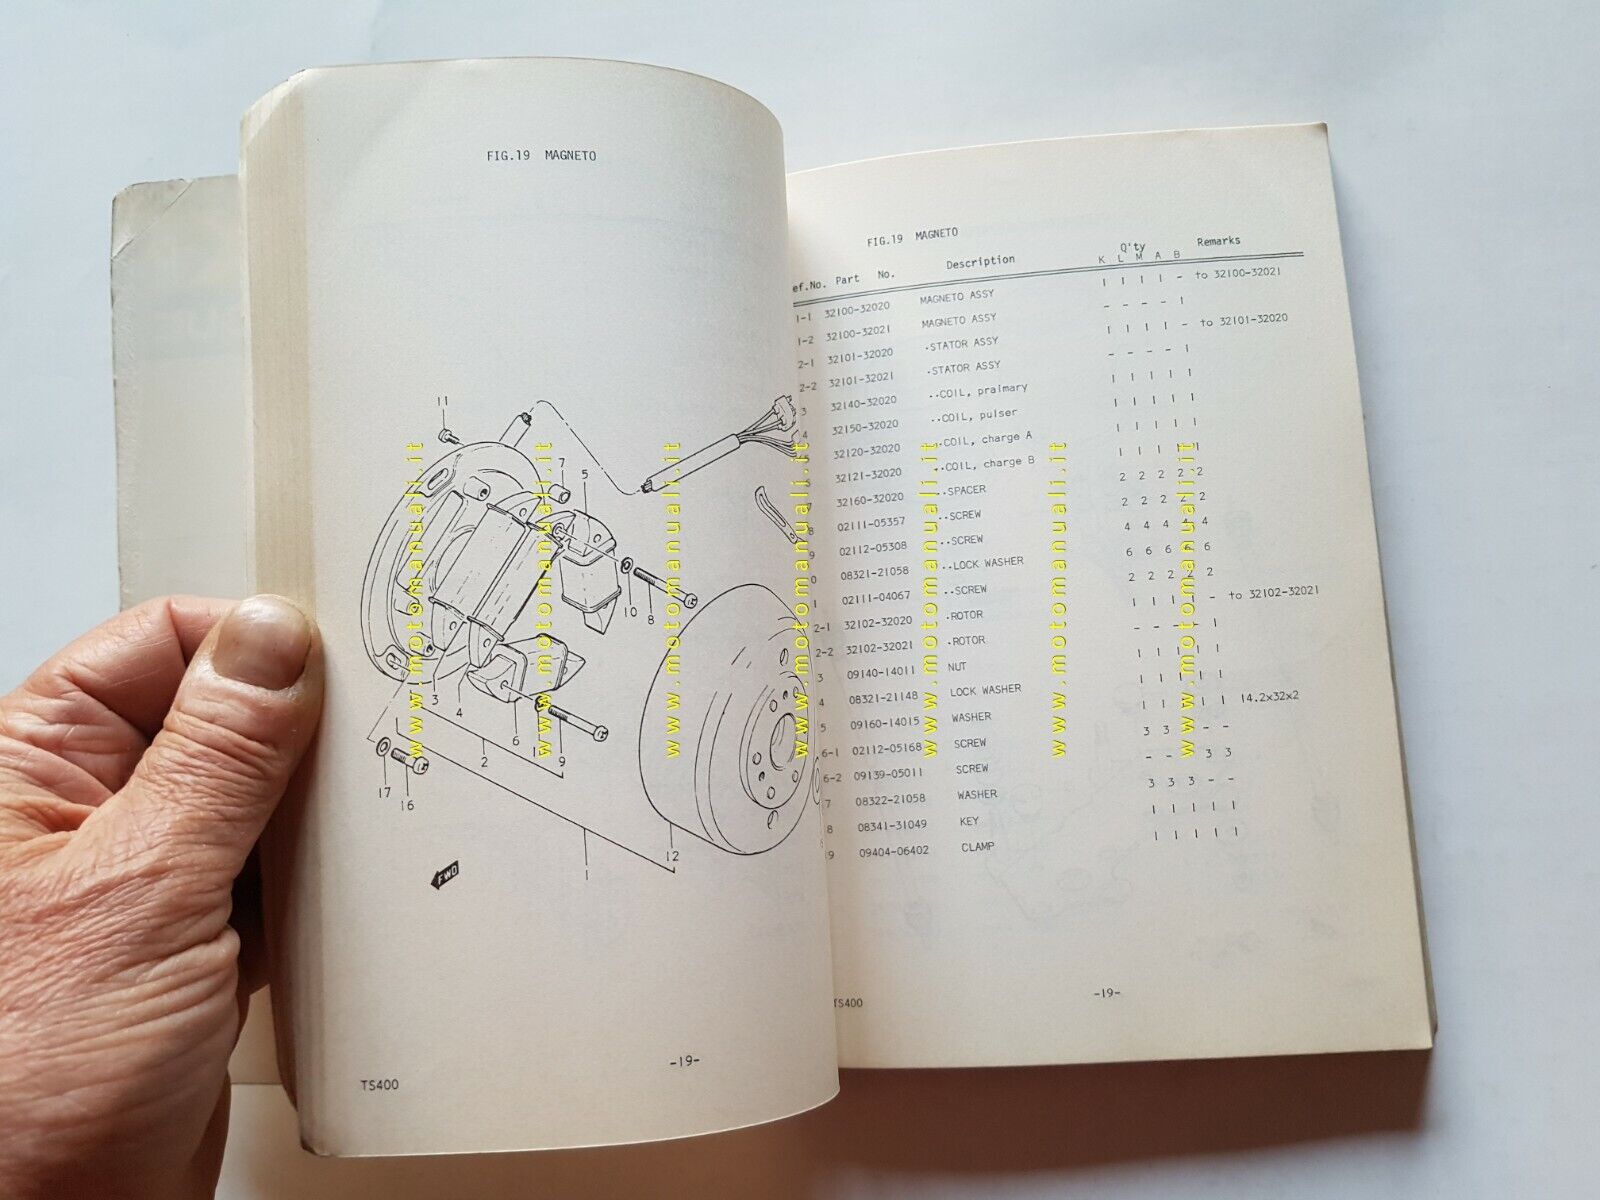 FIG.19 MAGNETO
11
7
5
10
8
3
4
6
9
2
17
16
1
12
FWD
-19-
TS400
FIG.19 MAGNETO
ef.No. Part No. Description Q'ty Remarks
K L M A B
1-1 32100-32020 MAGNETO ASSY 1 1 1 1 - to 32100-32021
1-2 32100-32021 MAGNETO ASSY - - - - 1
2-1 32101-32020 .STATOR ASSY 1 1 1 1 - to 32101-32020
2-2 32101-32021 .STATOR ASSY - - - - 1
3 32140-32020 ..COIL, praimary 1 1 1 1 1
4 32150-32020 ..COIL, pulser 1 1 1 1 1
32120-32020 ..COIL, charge A 1 1 1 1 1
32121-32020 ..COIL, charge B 1 1 1 1 1
7 32160-32020 ..SPACER 2 2 2 2 2
8 02111-05357 ..SCREW 2 2 2 2 2
9 02112-05308 ..SCREW 4 4 4 4 4
0 08321-21058 ..LOCK WASHER 6 6 6 6 6
1 02111-04067 ..SCREW 2 2 2 2 2
2-1 32102-32020 .ROTOR 1 1 1 1 - to 32102-32021
2-2 32102-32021 .ROTOR - - - - 1
3 09140-14011 NUT 1 1 1 1 1
4 08321-21148 LOCK WASHER 1 1 1 1 1
5 09160-14015 WASHER 1 1 1 1 1 14.2x32x2
6-1 02112-05168 SCREW 3 3 3 - -
6-2 09139-05011 SCREW - - - 3 3
7 08322-21058 WASHER 3 3 3 - -
8 08341-31049 KEY 1 1 1 1 1
9 09404-06402 CLAMP 1 1 1 1 1
-19-
TS400
www.motomanuali.it
www.motomanuali.it
www.motomanuali.it
www.motomanuali.it
www.motomanuali.it
www.motomanuali.it
www.motomanuali.it